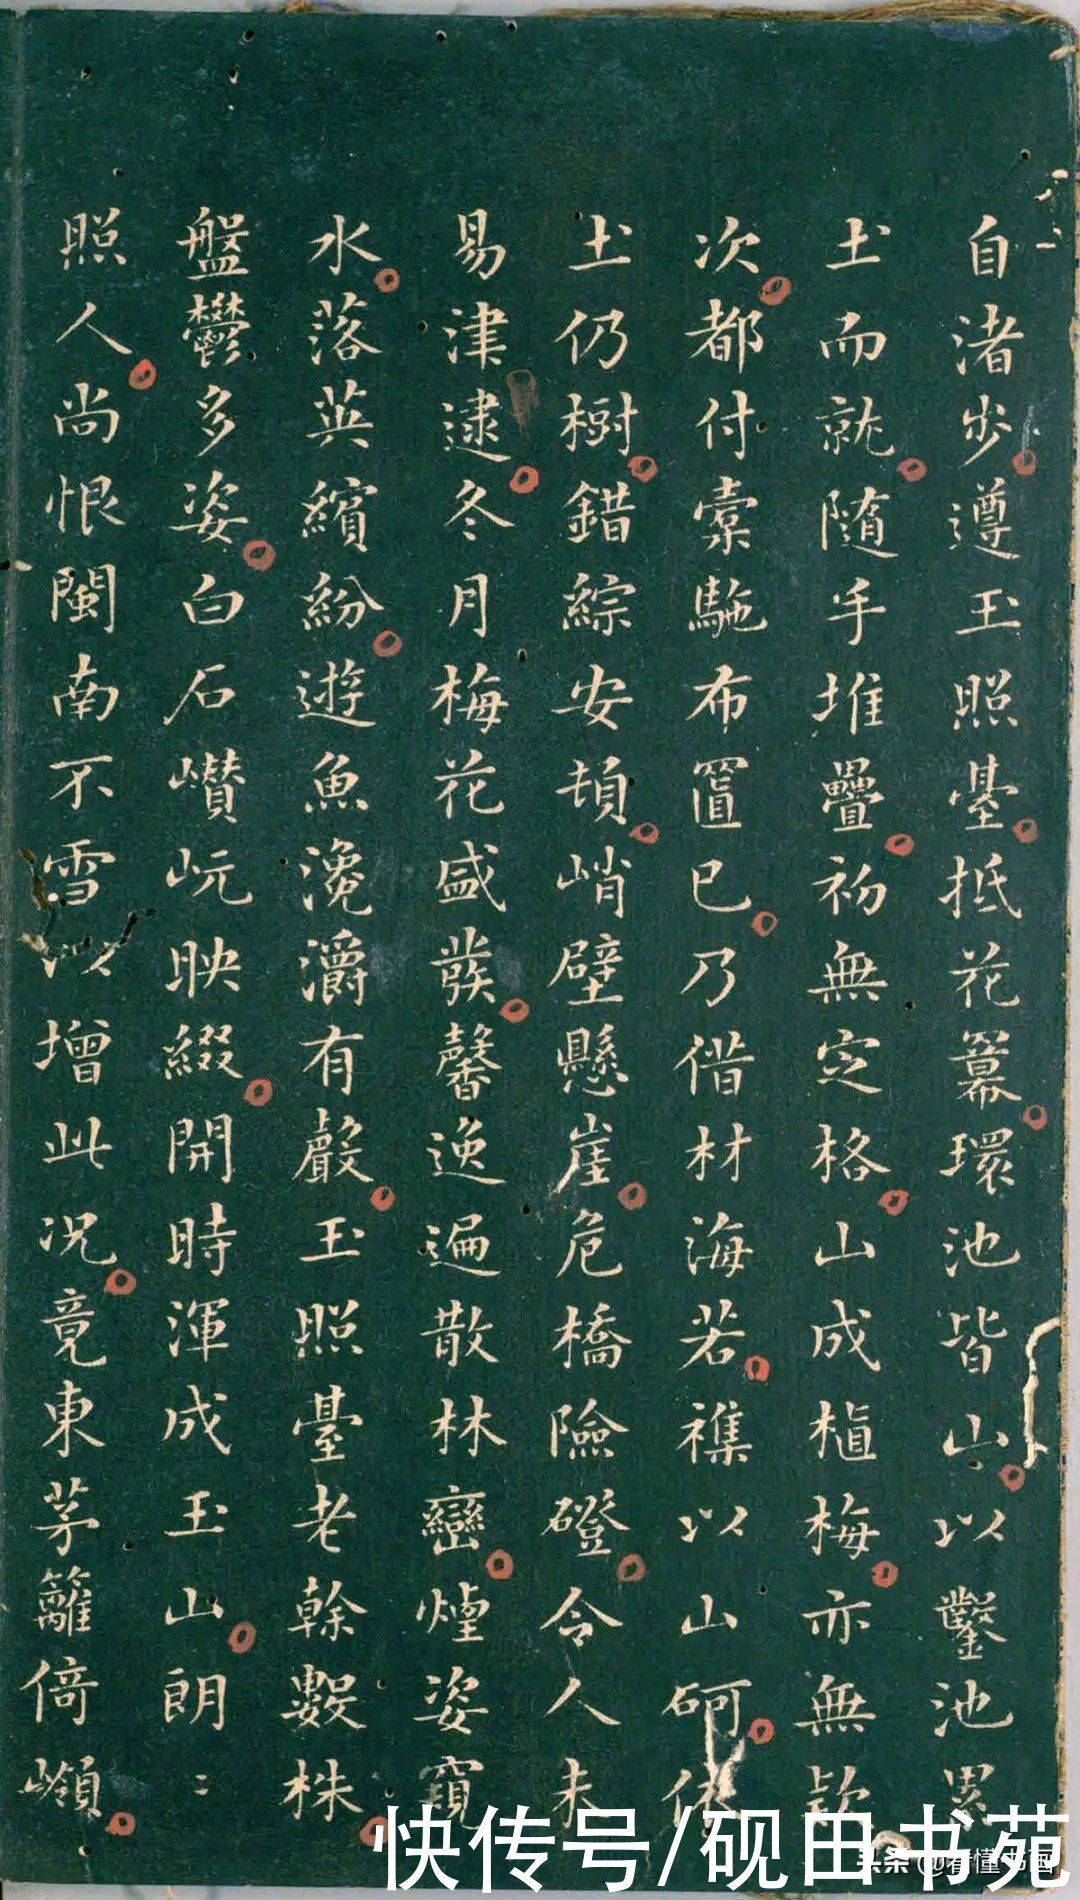 自渚步遵玉照臺抵花羃環池皆山以鑿池累
土而就隨手堆疊初無定格山成植梅亦無款
次都付槖駞布置已乃借材海若襍以山砢依
土仍樹錯綜安頓峭壁懸崖危橋險磴令人未
易津逮冬月梅花盛發馨逸遍散林巒煙姿窺
水落英繽紛遊魚濸灂有聲玉照臺老榦數株
盤鬱多姿白石巑岏映綴開時渾成玉山朗〻
照人尚恨閩南不雪以增此况竟東茅籬倚嶺
快传号/砚田书苑
头条@看懂书画